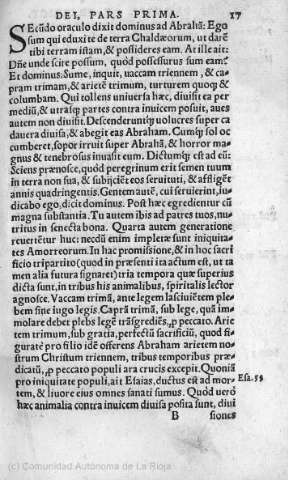 DEI, PARS PRIMA. 17
SEcūdo oraculo dixit dominus ad Abrahā: Ego
sum qui eduxi te de terra Chaldæorum, ut darē
tibi terram istam, & possideres eam. At ille ait:
Dñe unde scire possum, quod possessurus sum eam?
Et dominus: Sume, inquit, vaccam triennem, & ca-
pram trimam, & arietē trimum, turturem quoq; &
columbam. Qui tollens universa hæc, divisit ea per
mediū, & utrasq; partes contra invicem posuit, aues
autem non divisit. Descenderuntq; uolucres super ca
dauera divisa, & abegit eas Abraham. Cumq; sol oc
cumberet, sopor irruit super Abrahā, & horror mag
nus & tenebrosus inuasit eum. Dictumq; est ad eū:
Sciens prænosce, quòd peregrinum erit semen tuum
in terra non sua, & subijciēt eos seruituti, & affligēt
annis quadringentis. Gentem autē, cui seruierint, iu-
dicabo ego, dicit dominus. Post hæc egredientur cū
magna substantia. Tu autem ibis ad patres tuos, nu-
tritus in senecta bona. Quarta autem generatione
reuertētur huc: necdū enim impletæ sunt iniquita-
tes Amorreorum. In hac promissione, & in hoc sacri
ficio tripartito (quod in præsenti ita actum est, ut ta
men alia futura signaret) tria tempora quæ superius
dicta sunt, in tribus his animalibus, spiritalis lector
agnosce. Vaccam trimā, ante legem lasciuiētem ple-
bem sine iugo legis. Caprā trimā, sub lege, quā im-
molare debet plebs legē trāsgrediēs, ꝓ peccato. Arie-
tem trimum, sub gratia, perfectū sacrificiū, quod fi-
guratē pro filio idē offerens Abraham arietem no-
strum Christum triennem, tribus temporibus præ-
dicatū, ꝓ peccato populi ara crucis excepit. Quoniā
pro iniquitate populi, ait Esaias, ductus est ad mor-
Esa. 53
tem, & liuore eius omnes sanati sumus. Quòd uerò
hæc animalia contra inuicem diuisa posita sunt, diui
B siones
(c) Comunidad Autónoma de La Rioja